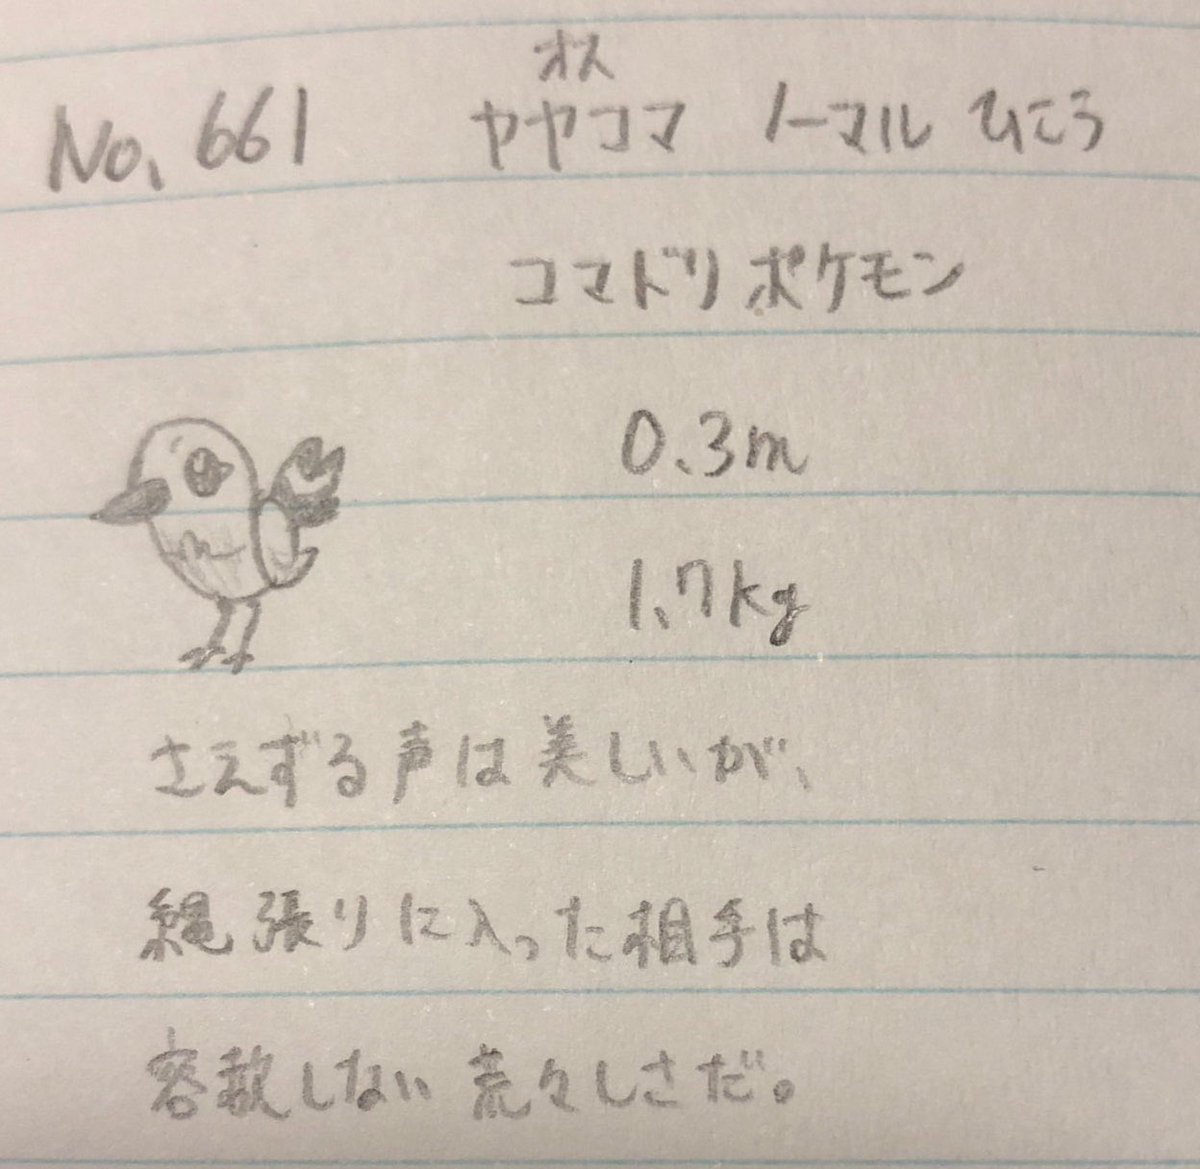 オス
No. 661 ヤヤコマ ノーマル ひこう
コマドリポケモン
0.3m
1.7kg
さえずる声は美しいが、
縄張りに入った相手は
容赦しない荒々しさだ。